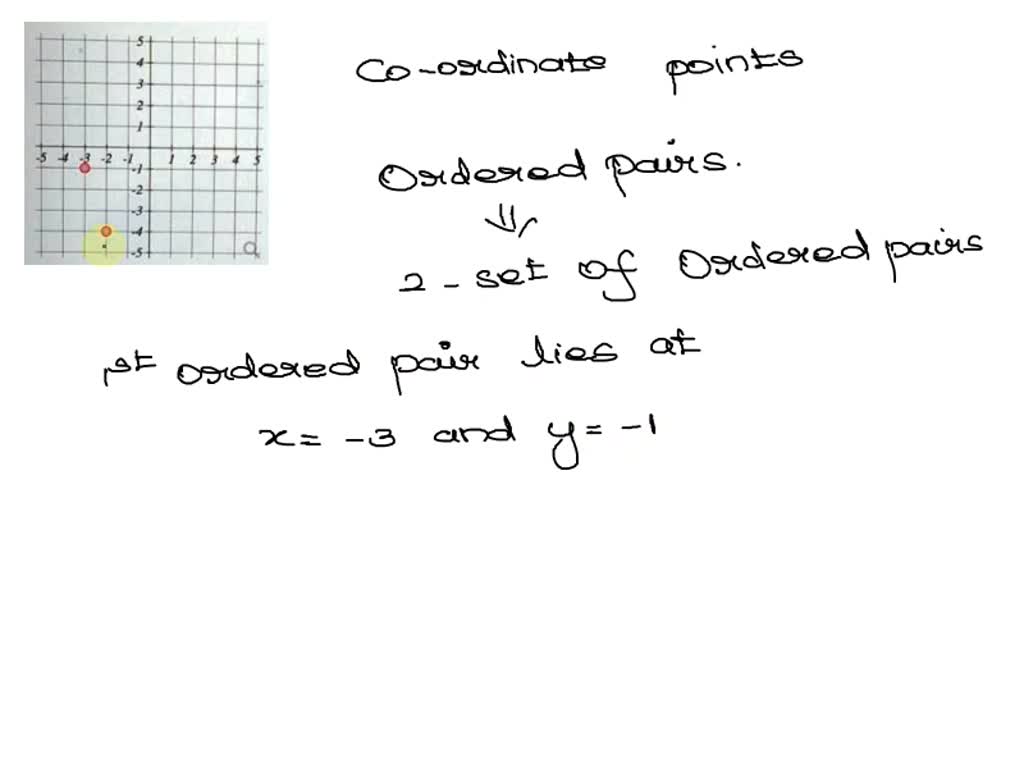 5
4
3
2
1
-5 -4 -3 -2 -1 1 2 3 4 5
-1
-2
-3
-4
-5
Co-ordinate points
Ordered pairs.
2 - set of Ordered pairs
1st ordered pair lies at
x = -3 and y = -1